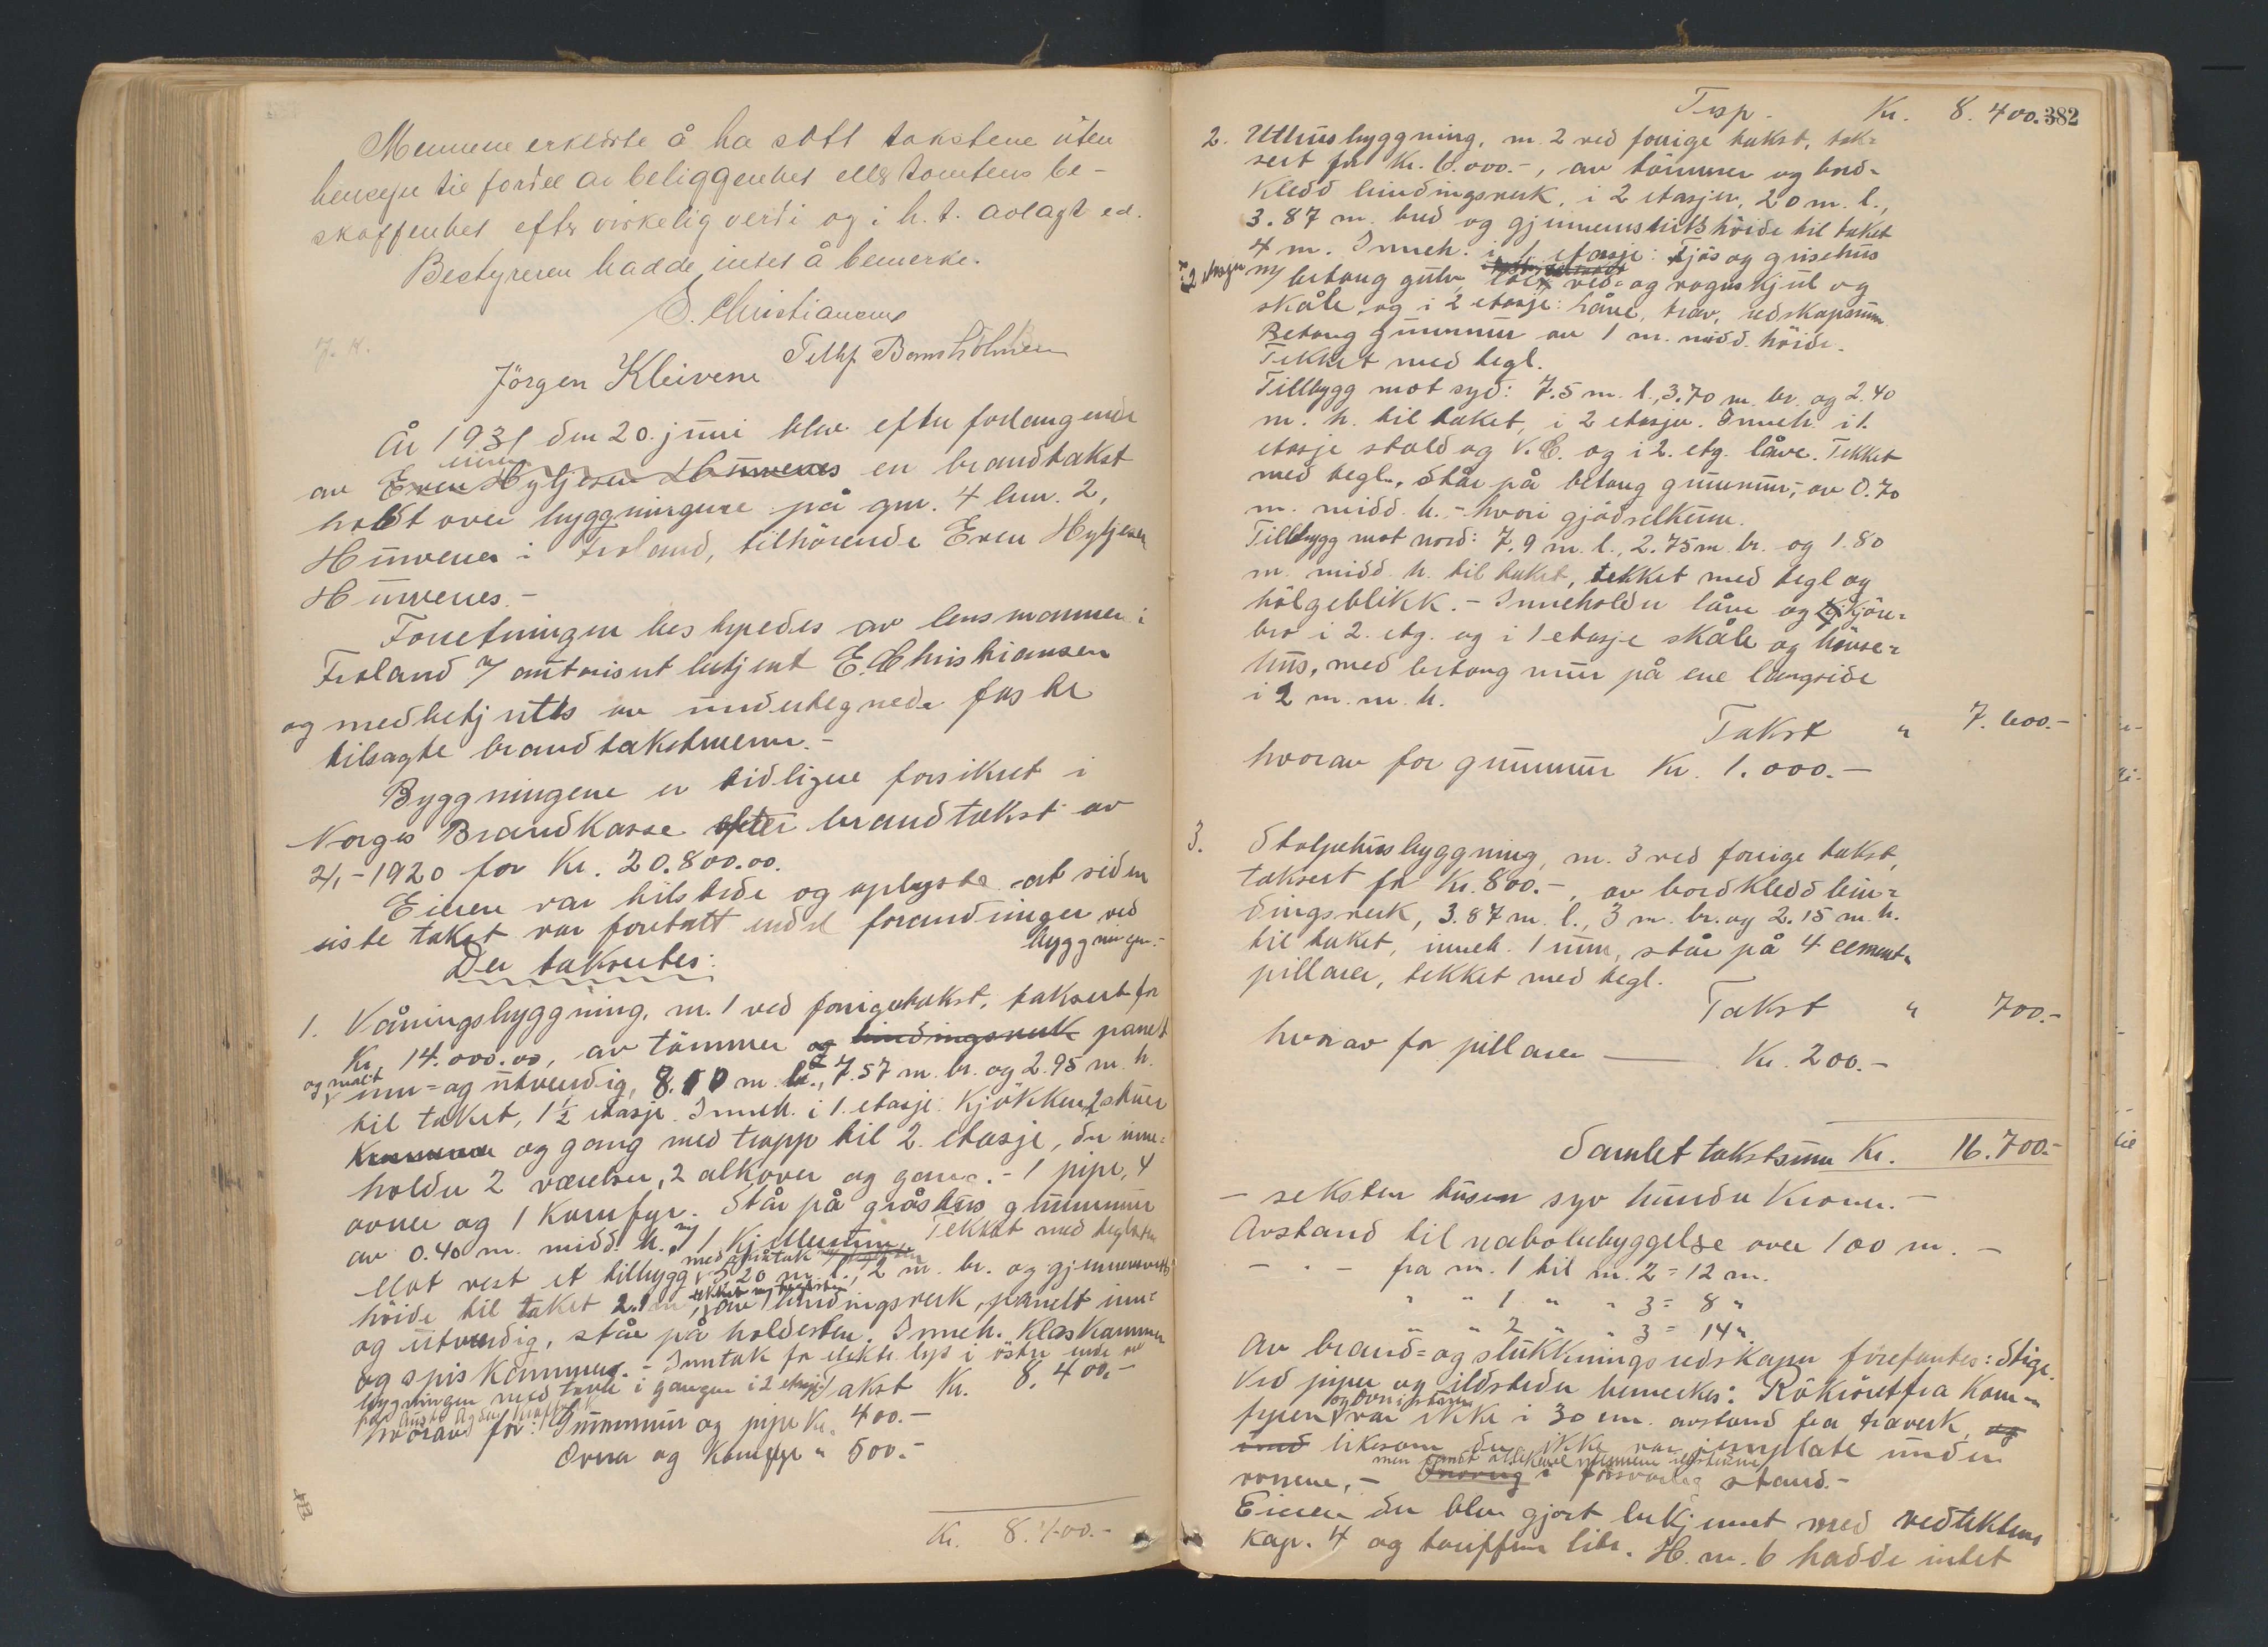 Mennene erklærte å ha satt takstene uten
hensyn til fordel av beliggenhet eller tomtens be-
skaffenhet efter virkelig verdi og i h. t. avlagt ed.
Bestyreren hadde intet å bemerke.
E. Christiansen
J. K.
Jörgen Kleivene
År 1931 den 20. juni blev efter forlangende
av eieren en brandtakst
holdt over byggningene på gnr. 4 bnr. 2,
i Froland, tilhörende Even Hyljesen
Forretningen bestyredes av lensmannen i
Froland v/ autorisert betjent E. Christiansen
og medbetjentes av undertegnede faste
tilsagte brandtakstmenn.-
Byggningene er tidligere forsikret i
Norges Brandkasse efter brandtakst av
2/1-1920 for Kr. 20.800.00.
Eieren var tilstede og oplyste at siden
siste takst var foretatt endel forandringer ved
byggningen.-
Der takseredes:
1. Våningsbyggning, nr. 1 ved forrige takst, taksert for
Kr. 14.000.00, av tömmer og bindingsverk panelt
og malt
inn- og utvendig, 8.10 m. l., 7.57 m. br. og 2.95 m. h.
til taket, 1½ etasje. Inneh. i 1. etasje: Kjökken, 2 stuer
og gang med trapp til 2. etasje, der inne-
holder 2 værelser, 2 alkover og gang.- 1 pipe, 4
ovner og 1 komfyr. Står på gråstens grunnmur
av 0.40 m. midd. h. m/ 1 kjellerrum. Tekket med teglsten
Mot vest et tilbygg 5.20 m. l., 2 m. br. og gjennemsnitts
höide til taket 2.1 m, av bindingsverk, panelt inn-
og utvendig, står på holdesten. Inneh. Kleskammer
og spiskammer.- Inntak for elektr. lys i östre ende av
bygningen med tavle i gangen i 2 etasje. Takst Kr. 8.400.-
hvorav for: Grunnmur og pipe Kr. 400.-
Ovner og komfyr " 500.-
Kr. 8.400.-
382
Trsp. Kr. 8.400.
2. Uthusbyggning, nr. 2 ved forrige takst, tak-
sert for Kr. 6.000.-, av tömmer og bord-
kledd bindingsverk, i 2 etasjer, 20 m. l.,
3.87 m. bred og gjennemsnittshöide til taket
4 m. Inneh. i 1. etasje: Fjös og grisehus
m/ betong gulv, ved- og vognskjul og
skåle, og i 2 etasje: låve, trav, redskapsrum
Betong grunnmur av 1 m. midd. höide.
Tekket med tegl.
Tillbygg mot syd: 7.5 m. l., 3.70 m. br. og 2.40
m. h. til taket, i 2 etasjer. Inneh. i 1.
etasje stald og V.C. og i 2. etg. låve. Tekket
med tegl. Står på betong grunnmur, av 0.70
m. midd. h. - hvori gjödselkum.
Tillbygg mot nord: 7.9 m. l., 2.75 m. br. og 1.80
m. midd. h. til taket, tekket med tegl og
bölgeblikk.- Inneholder låve og kjöre-
bro i 2. etg. og i 1 etasje skåle og hönse-
hus, med betong mur på ene langside
i 2 m. m. h.
Takst " 7.600.-
hvorav for grunnmur Kr. 1.000.-
3. Stolpehusbyggning, nr. 3 ved forrige takst,
taksert for Kr. 800.-, av bordkledd bin-
dingsverk, 3.87 m. l., 3 m. br. og 2.15 m. h.
til taket, inneh. 1 rum, står på 4 cement-
pillarer, tekket med tegl.
Takst " 700.-
hvorav for pillarer Kr. 200.-
Samlet takstsum Kr. 16.700.-
- seksten tusen syv hundre Kroner.-
Avstand til nabobebyggelse over 100 m.-
- " - fra nr. 1 til nr. 2 = 12 m.
" " 1 " " 3 = 8 "
" " 2 " " 3 = 14 "
Av brand- og slukkningsredskaper forefantes: Stige.
Ved piper og ildsteder bemerkes: Rökröret fra Kom-
og ovn i stuen
fyren var ikke i 30 cm. avstand fra træverk, og
likesom der ikke var jernplate under
ovnene,- i forsvarlig stand.-
Eieren der blev gjort bekjennt med vedtektens
Kap. 4 og tariffens litr. H. nr. 6 hadde intet